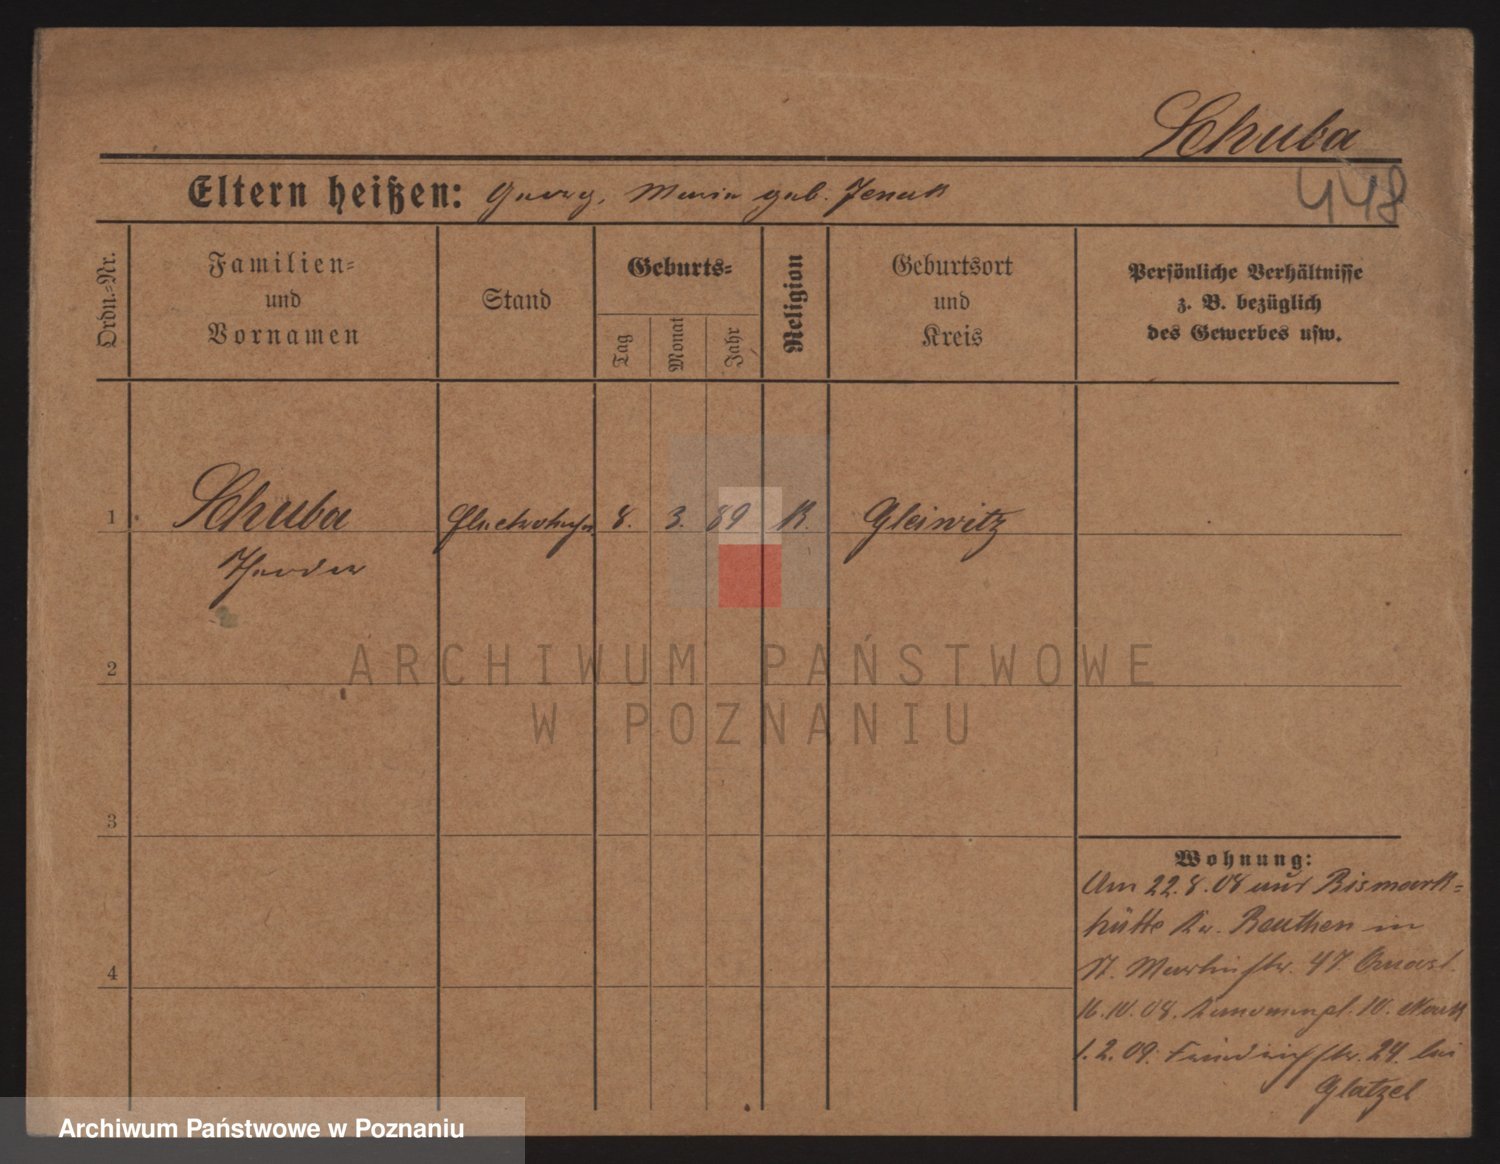 Schuba
Eltern heißen: Georg, Maria geb. Jenak
448
Ordn.=Nr.
Familien=
und
Vornamen
Stand
Geburts=
Tag
Monat
Jahr
Religion
Geburtsort
und
Kreis
Persönliche Verhältnisse
z. B. bezüglich
des Gewerbes usw.
1 Schuba 8. 3. 89 K. Gleiwitz
Theodor
2
3
4
Wohnung:
Am 22.8.08 aus Bismark=
hütte Kr. Beuthen in
St. Martinstr. 47
16.10.08. 10. Nowak
1.2.09. Friedrichstr. 24. bei
Glatzel
ARCHIWUM PAŃSTWOWE
W POZNANIU
Archiwum Państwowe w Poznaniu